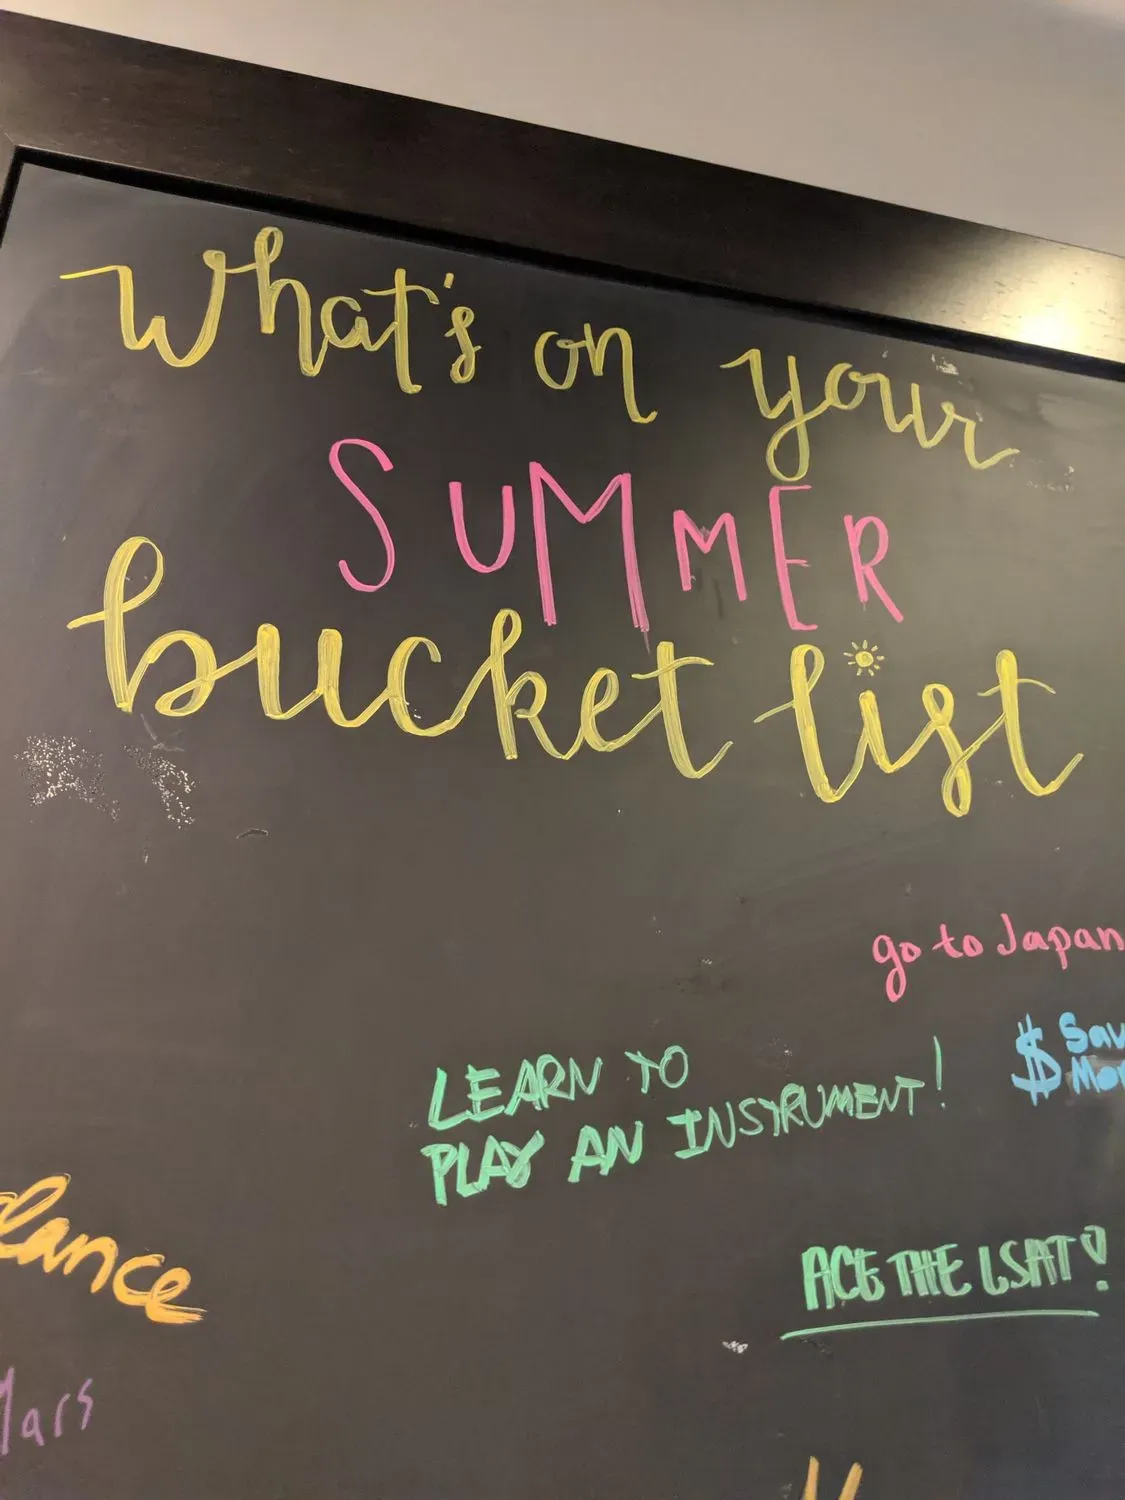 What's on your
SUMMER
bucket list
go to Japan
$ Sav
Mon
LEARN TO
PLAY AN INSTRUMENT!
lance
ACE THE LSAT!
Mars